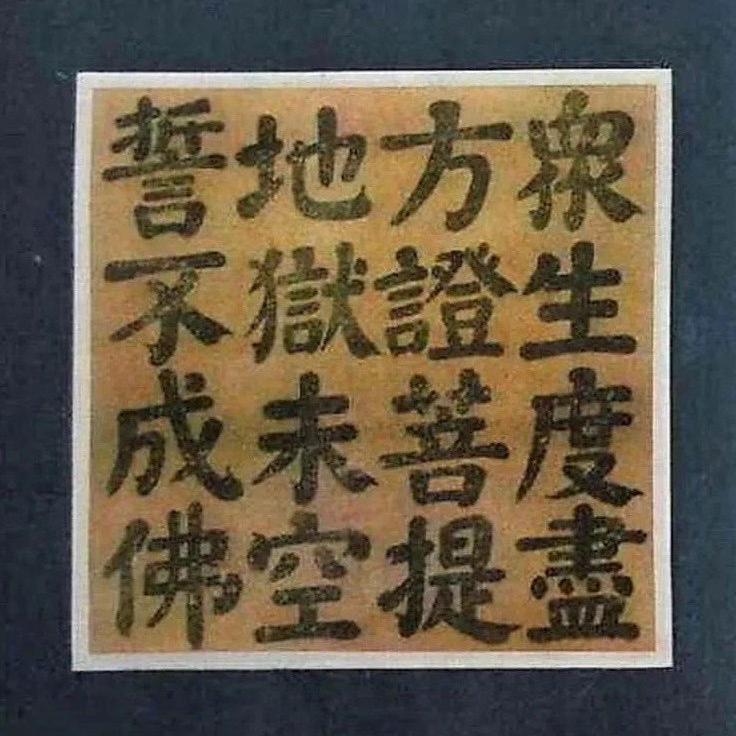 眾生度盡
方證菩提
地獄未空
誓不成佛